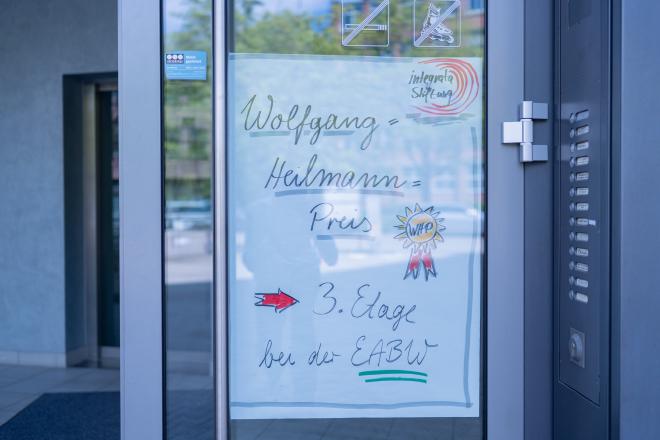 integrata
Stiftung
Wolfgang=
Heilmann=
Preis
WHP
3. Etage
bei der EABW